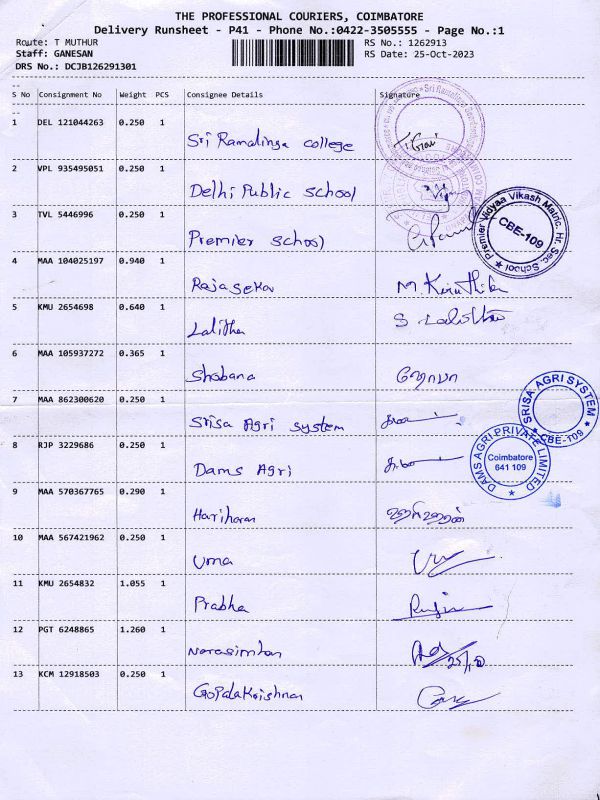 THE PROFESSIONAL COURIERS, COIMBATORE
Delivery Runsheet - P41 - Phone No.:0422-3505555 - Page No.:1
Route: T MUTHUR RS No.: 1262913
Staff: GANESAN RS Date: 25-Oct-2023
DRS No.: DCJB126291301
S No Consignment No Weight PCS Consignee Details Signature
1 DEL 121044263 0.250 1
Sri Ramalinga college
2 VPL 935495051 0.250 1
Delhi Public school
3 TVL 5446996 0.250 1
Premier school
Premier Vidyaa Vikash Matric. Hr. Sec. School
CBE-109
4 MAA 104025197 0.940 1
Rajasekar M. Kiruthika
5 KMU 2654698 0.640 1
Lalitha S. Lalitha
6 MAA 105937272 0.365 1
Shobana ஷோபா
7 MAA 862300620 0.250 1
Srisa Agri system
SRISA AGRI SYSTEM
CBE-109
8 RJP 3229686 0.250 1
Dams Agri
DAMS AGRI PRIVATE LIMITED
Coimbatore
641 109
9 MAA 570367765 0.290 1
Hariharan ஹரிஹரன்
10 MAA 567421962 0.250 1
Uma
11 KMU 2654832 1.055 1
Prabha
12 PGT 6248865 1.260 1
Narasimhan
13 KCM 12918503 0.250 1
Gopalakrishnan